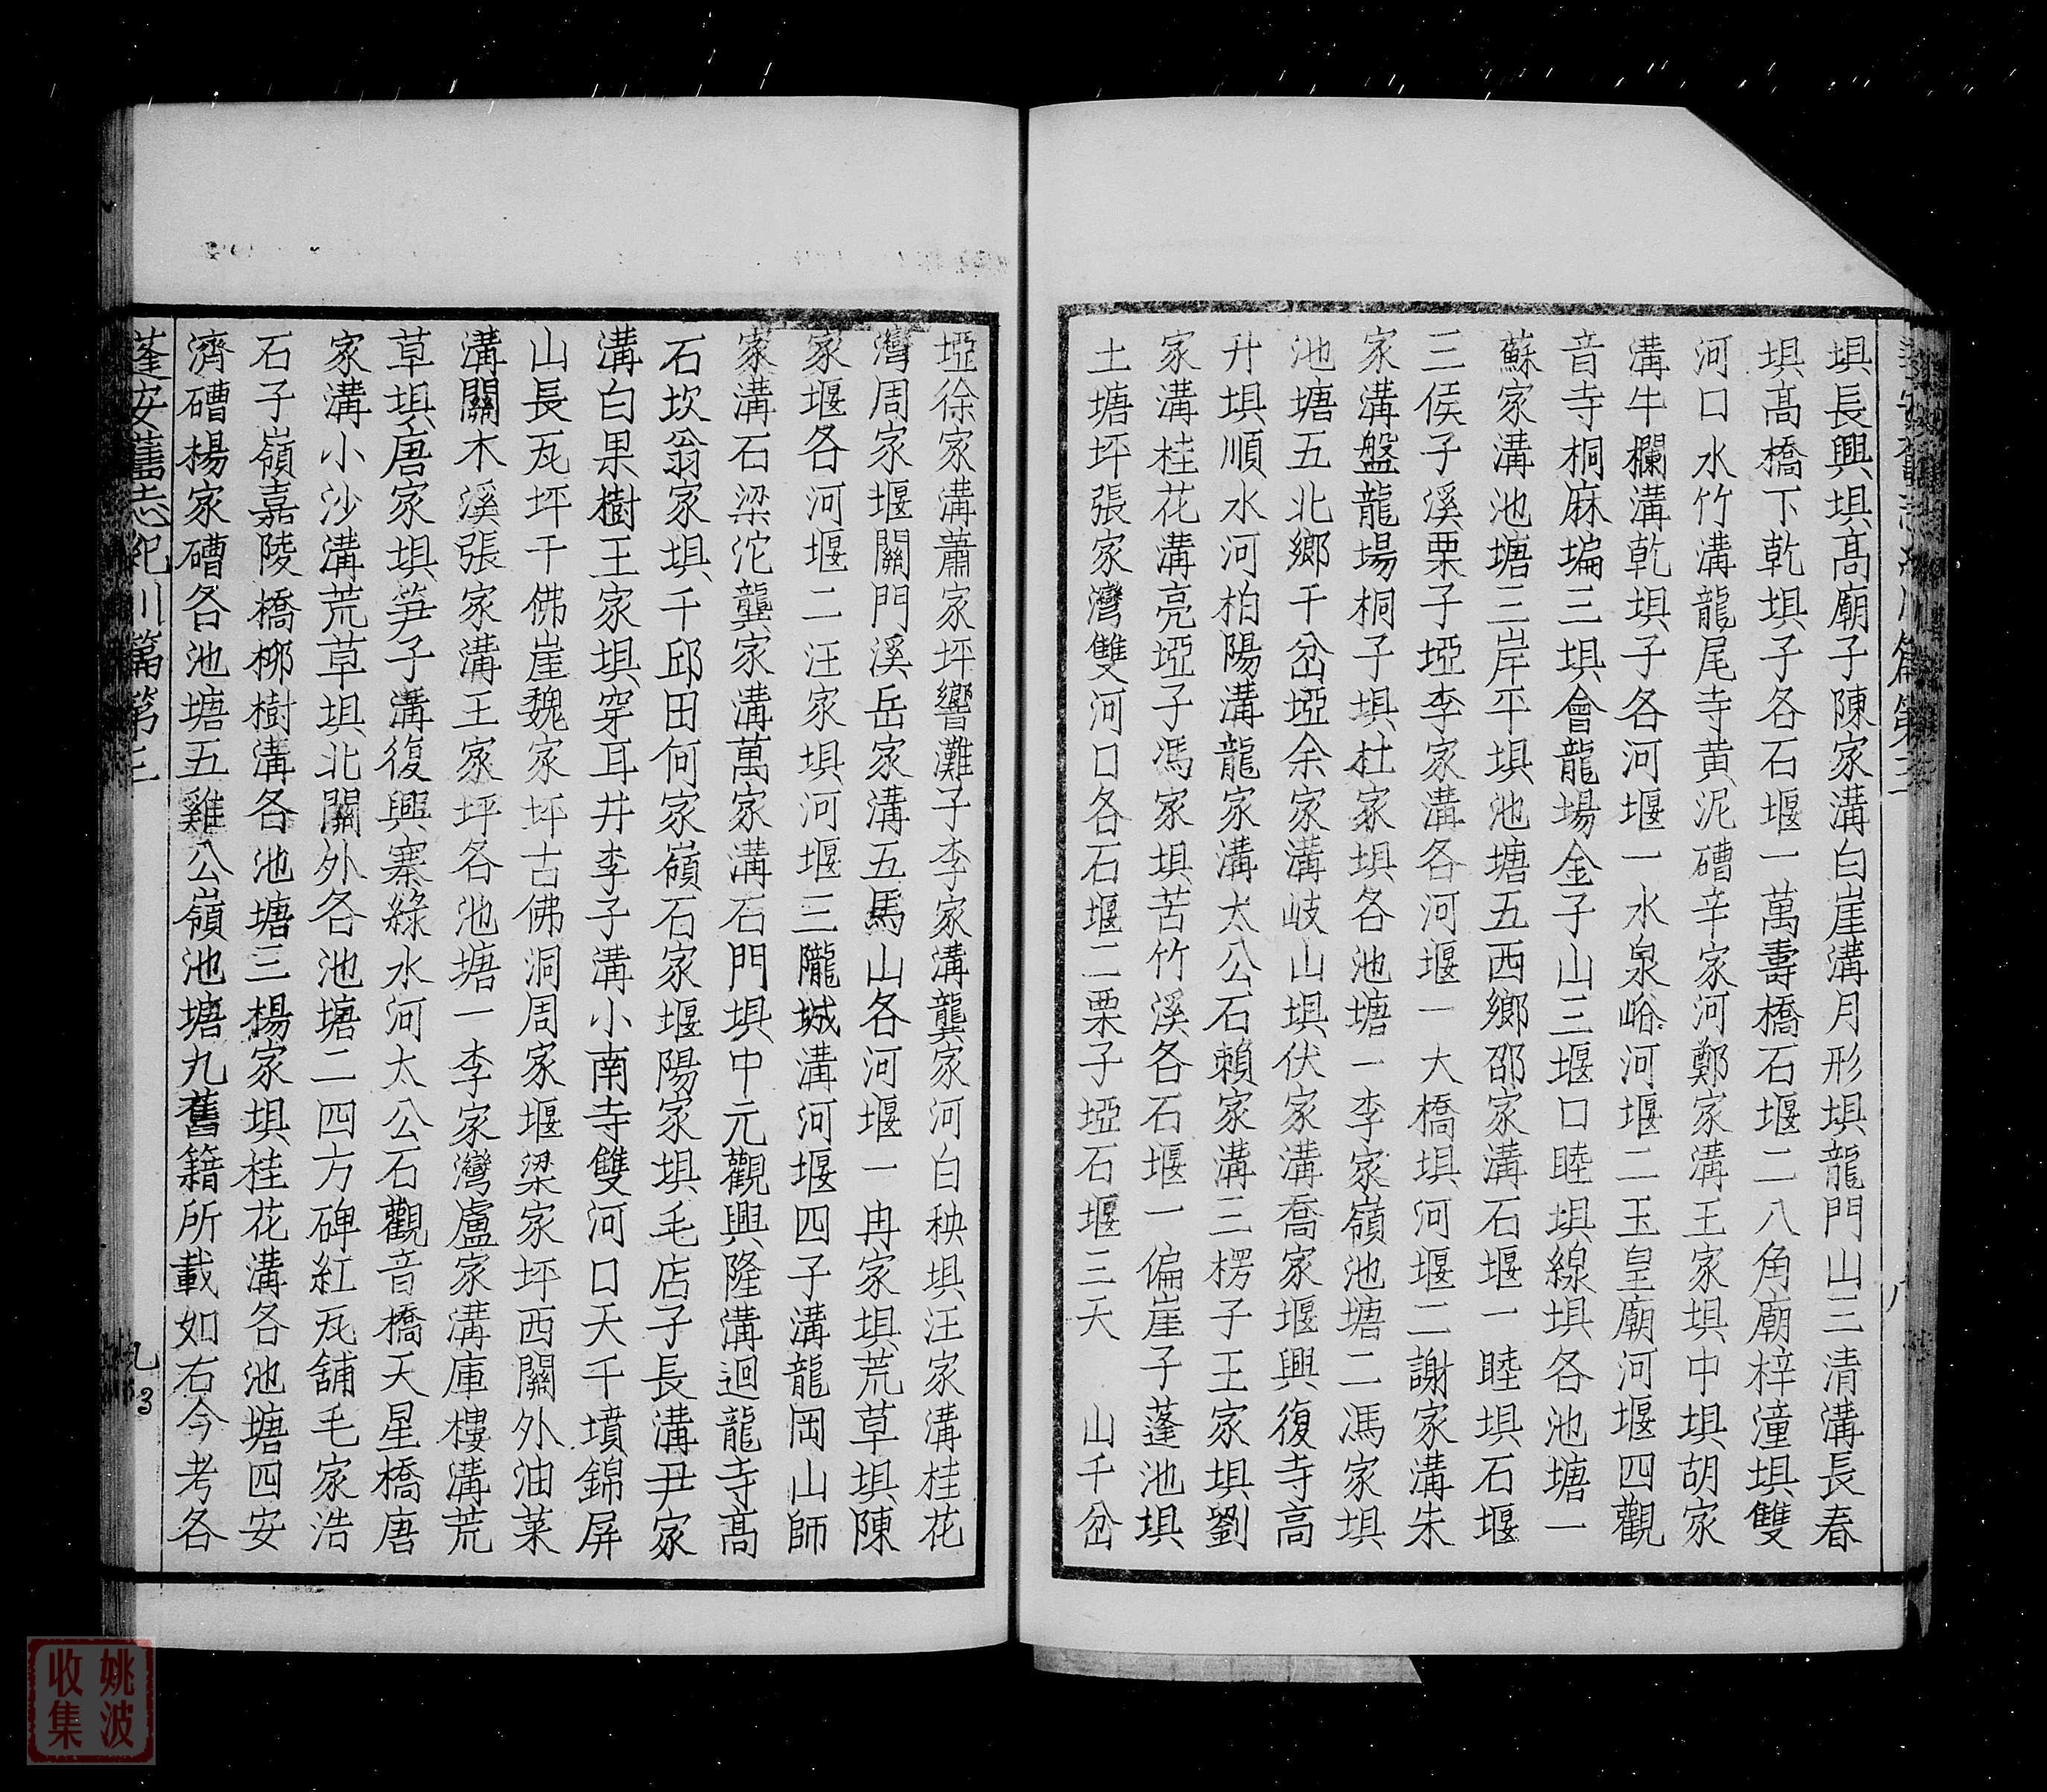 蓬安舊志紀川篇第三
八
垻長興垻高廟子陳家溝白崖溝月形垻龍門山三清溝長春
垻高橋下乾垻子各石堰一萬壽橋石堰二八角廟梓潼垻雙
河口水竹溝龍尾寺黃泥磳辛家河鄭家溝王家垻中垻胡家
溝牛欄溝乾垻子各河堰一水泉峪河堰二玉皇廟河堰四觀
音寺桐麻塥三垻會龍場金子山三堰口睦垻線垻各池塘一
蘇家溝池塘三岸平垻池塘五西鄉邵家溝石堰一睦垻石堰
三侯子溪栗子埡李家溝各河堰一大橋垻河堰二謝家溝朱
家溝盤龍場桐子垻杜家垻各池塘一李家嶺池塘二馮家垻
池塘五北鄉千岔埡余家溝岐山垻伏家溝喬家堰興復寺高
升垻順水河柏陽溝龍家溝太公石賴家溝三楞子王家垻劉
家溝桂花溝亮埡子馮家垻苦竹溪各石堰一偏崖子蓬池垻
土塘坪張家灣雙河口各石堰二栗子埡石堰三天 山千岔
埡徐家溝蕭家坪響灘子李家溝龔家河白秧垻汪家溝桂花
灣周家堰關門溪岳家溝五馬山各河堰一冉家垻荒草垻陳
家堰各河堰二汪家垻河堰三隴城溝河堰四子溝龍岡山師
家溝石梁沱龔家溝萬家溝石門垻中元觀興隆溝迴龍寺高
石坎翁家垻千邱田何家嶺石家堰陽家垻毛店子長溝尹家
溝白果樹王家垻穿耳井李子溝小南寺雙河口天千墳錦屏
山長瓦坪千佛崖魏家坪古佛洞周家堰梁家坪西關外油菜
溝關木溪張家溝王家坪各池塘一李家灣盧家溝庫樓溝荒
草垻唐家垻笋子溝復興寨綠水河太公石觀音橋天星橋唐
家溝小沙溝荒草垻北關外各池塘二四方碑紅瓦舖毛家浩
石子嶺嘉陵橋栁樹溝各池塘三楊家垻桂花溝各池塘四安
濟磳楊家磳各池塘五雞公嶺池塘九舊籍所載如右今考各
蓬安舊志紀川篇第三
九
3
姚波
收集